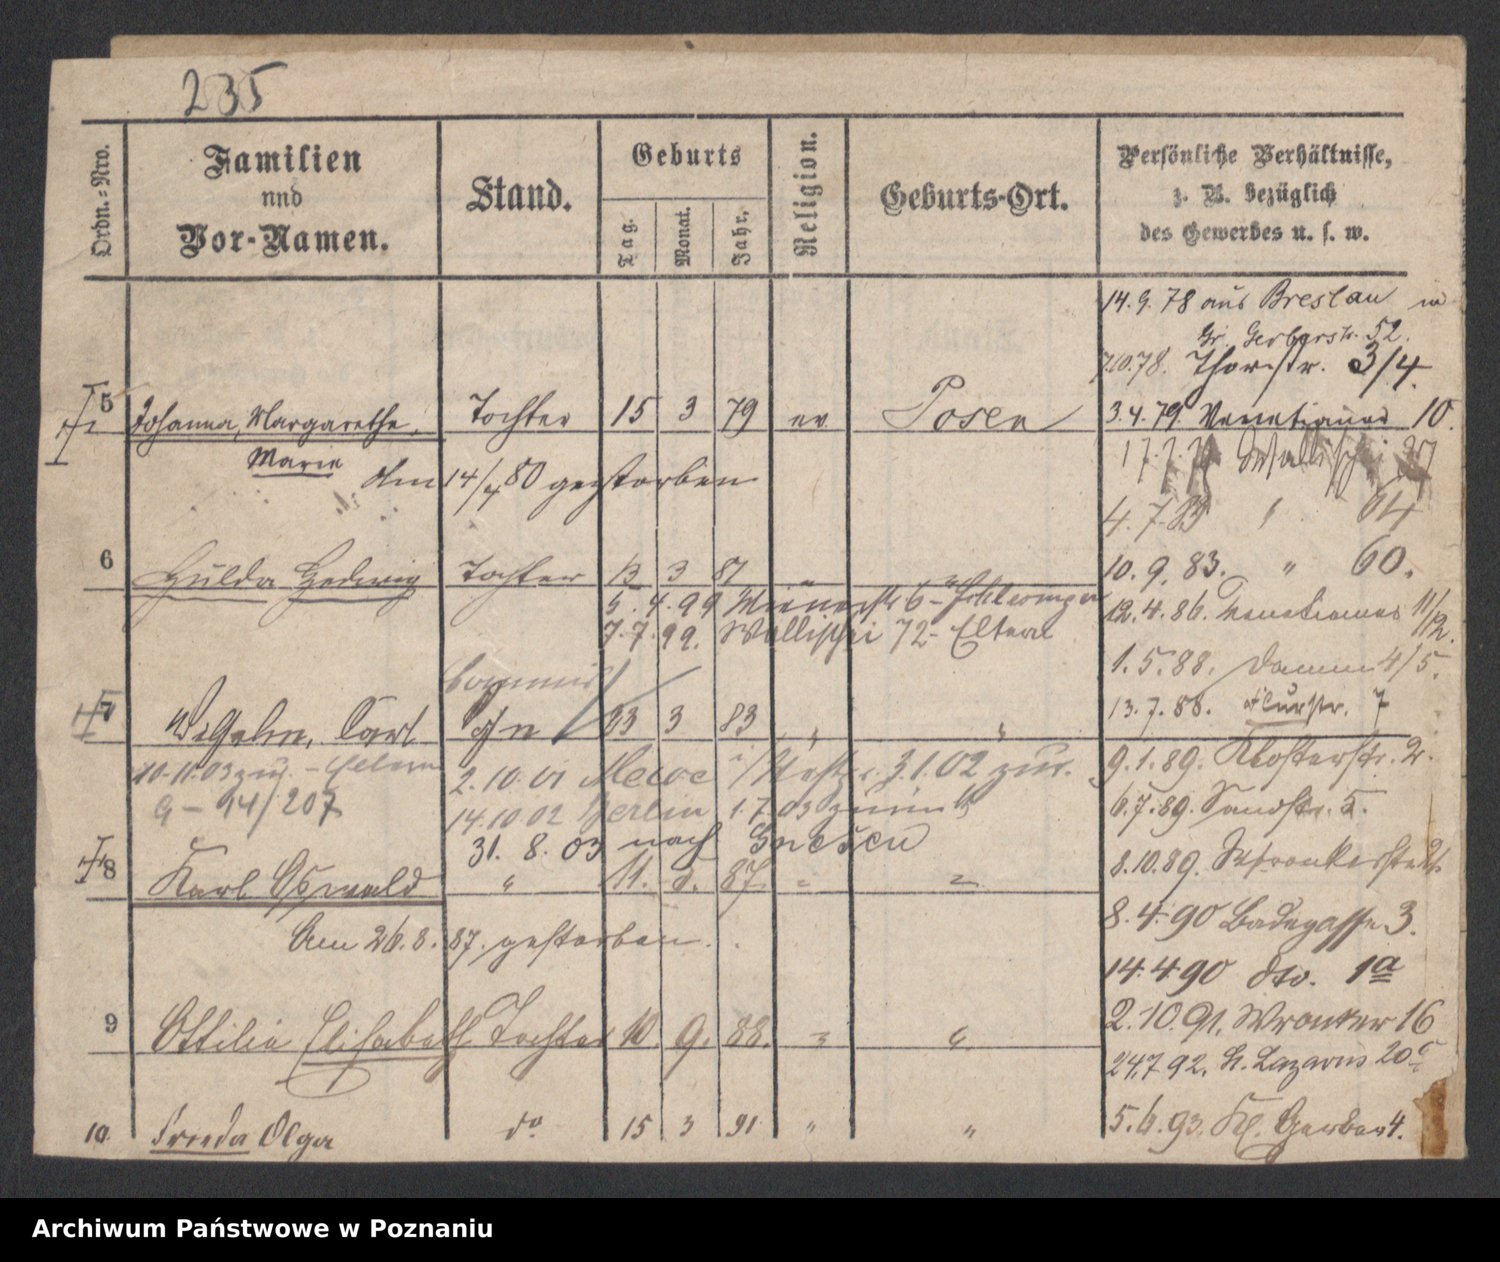 235
Ordn.-Nro.
Familien
und
Vor-Namen.
Stand.
Geburts
Tag.
Monat.
Jahr.
Religion.
Geburts-Ort.
Persönliche Verhältnisse,
z. B. bezüglich
des Gewerbes u. s. w.
14.9.78 aus Breslau in
Gr. Gerberstr. 52.
7.10.78. Thorstr. 3/4.
5 Johanna, Margarethe, Tochter 15 3 79 ev Posen 3.4.79. Venetianer 10.
Marie
Am 14/4 80 gestorben
Wallischei
4.7.83 " 64
6 Hulda Hedwig Tochter 13 3 81 " 10.9.83. " 60.
5.4.99 Wienerstr 6-
12.4.86. Venetianer 11/12.
7.7.99. Wallischei 72- Eltern
1.5.88. Damm 4/5.
7 Wilhelm, Carl 23 3 83 " " 13.7.88. Flurstr. 7
10.11.03 zur. - Eltern
2.10.01 Mewe i/Westpr. 3.1.02 zur.
9.1.89. Klosterstr. 2.
G - 14/207
14.10.02 Berlin 1.7.03
6.7.89. Sandstr. 5.
31.8.03 nach Gnesen
8 Karl Oswald " 11. 8. 87 " " 8.10.89.
Am 26.8.87. gestorben.
8.4.90 Badegasse 3.
14.4.90 dto. 1a
9 Ottilie Elisabeth Tochter 10. 9. 88. " " 2.10.91. Wronker 16
24.7.92. St. Lazarus 20c
10 Frieda Olga do 15 3 91 " " 5.6.93. Kl. Gerber 4.
Archiwum Państwowe w Poznaniu